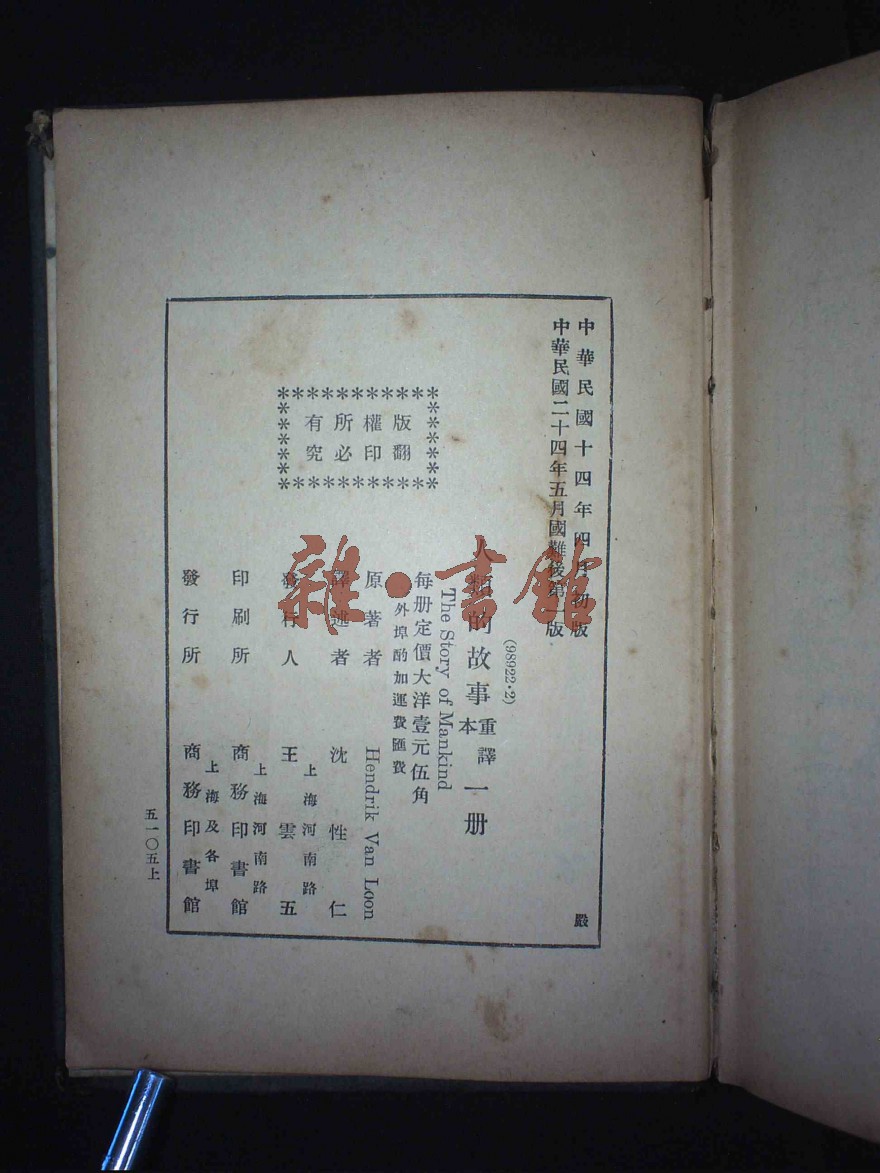 中華民國十四年四月初版
中華民國二十四年五月國難後第一版
(98922·2)
人類的故事 重譯本 一册
The Story of Mankind
每册定價大洋壹元伍角
外埠酌加運費匯費
原著者 Hendrik Van Loon
譯述者 沈性仁
發行人 王雲五
上海河南路
印刷所 商務印書館
上海河南路
發行所 商務印書館
上海及各埠
版權所有
翻印必究
五一〇五上
嚴
雜·書館